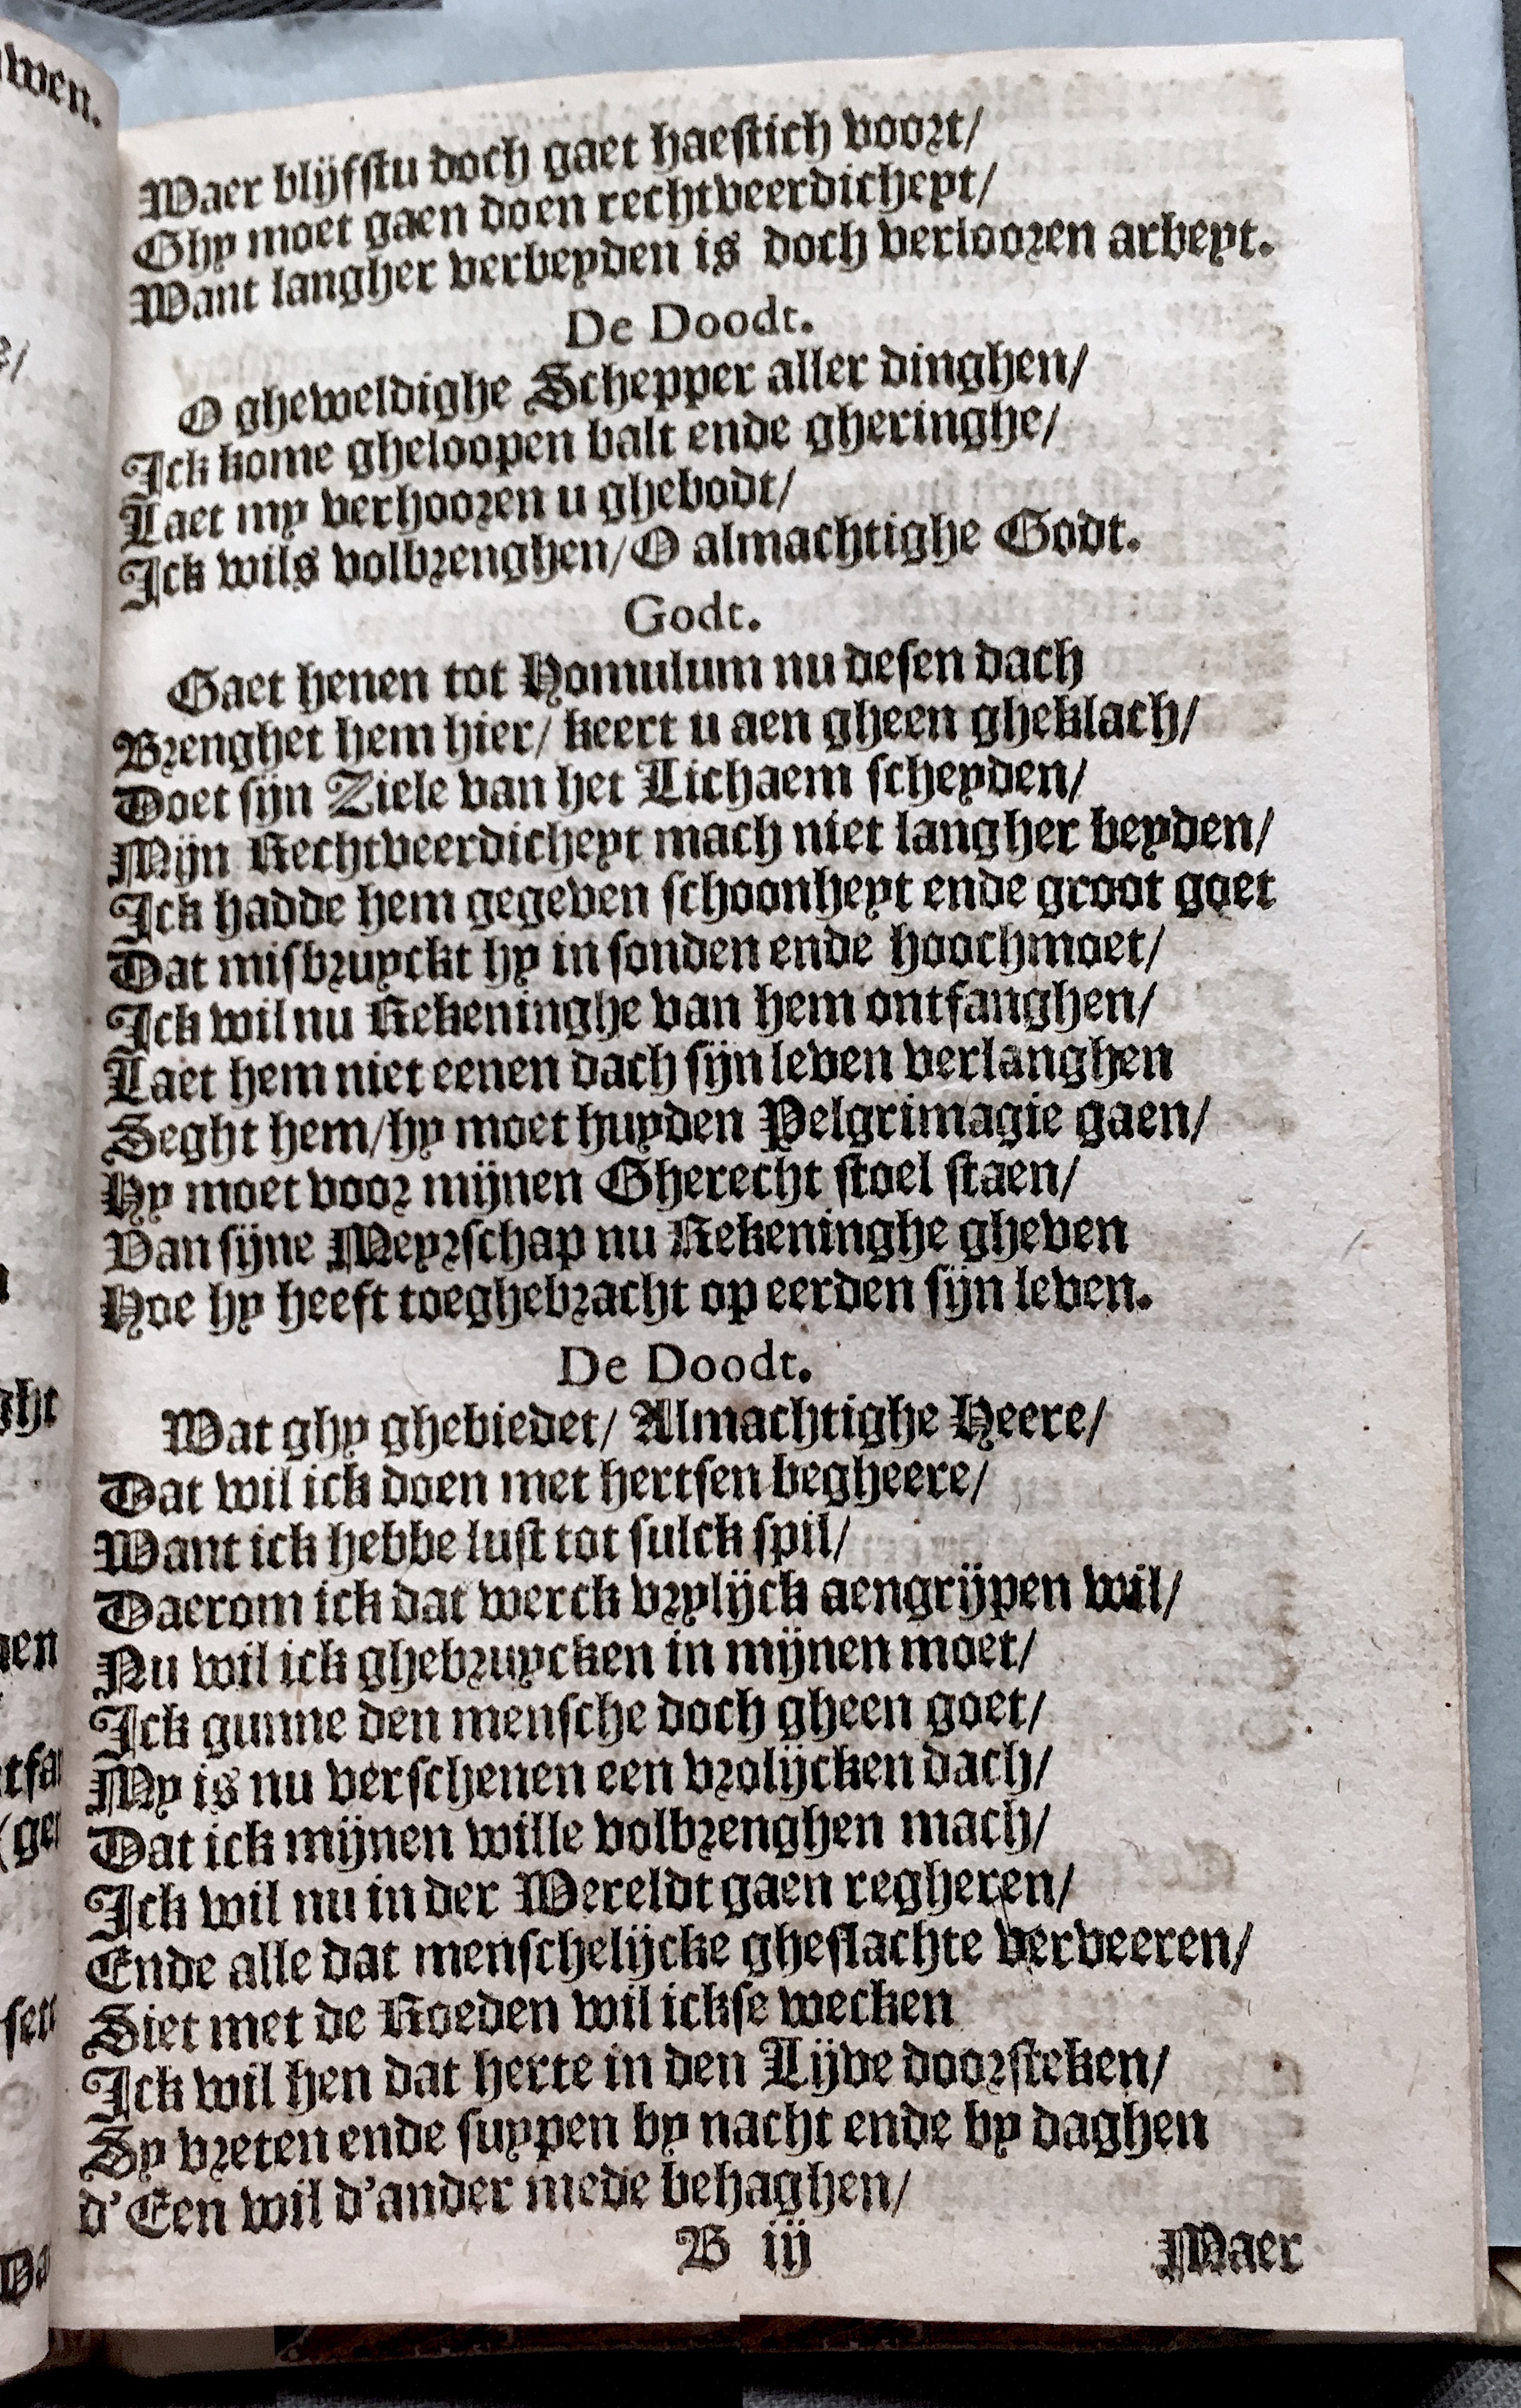 Waer blijfstu doch gaet haestich voort/
Ghy moet gaen doen rechtveerdicheyt/
Want langher verbeyden is doch verlooren arbeyt.
De Doodt.
O gheweldighe Schepper aller dinghen/
Ick kome gheloopen balt ende gheringhe/
Laet my verhooren u ghebodt/
Ick wils volbrenghen/ O almachtighe Godt.
Godt.
Gaet henen tot Homulum nu desen dach
Brenghet hem hier/ keert u aen gheen gheklach/
Doet sijn Ziele van het Lichaem scheyden/
Mijn Rechtveerdicheyt mach niet langher beyden/
Ick hadde hem gegeven schoonheyt ende groot goet
Dat misbruyckt hy in sonden ende hoochmoet/
Ick wil nu Rekeninghe van hem ontfanghen/
Laet hem niet eenen dach sijn leven verlanghen
Seght hem/ hy moet huyden Pelgrimagie gaen/
Hy moet voor mijnen Gherecht stoel staen/
Van sijne Meyrschap nu Rekeninghe gheven
Hoe hy heeft toeghebracht op eerden sijn leven.
De Doodt.
Wat ghy ghebiedet/ Almachtighe Heere/
Dat wil ick doen met hertsen begheere/
Want ick hebbe lust tot sulck spil/
Daerom ick dat werck vrylijck aengrijpen wil/
Nu wil ick ghebruycken in mijnen moet/
Ick gunne den mensche doch gheen goet/
My is nu verschenen een vrolijcken dach/
Dat ick mijnen wille volbrenghen mach/
Ick wil nu in der Wereldt gaen regheren/
Ende alle dat menschelijcke gheslachte verveeren/
Siet met de Roeden wil ickse wecken
Ick wil hen dat herte in den Lijve doorsteken/
Sy vreten ende suypen by nacht ende by daghen
d'Een wil d'ander mede behaghen/
B iij
Maer